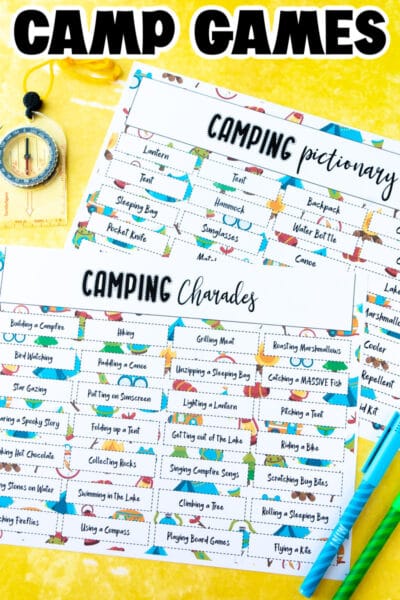 CAMP GAMES
CAMPING pictionary
Lantern
Tent
Tent
Backpack
Sleeping Bag
Hammock
Water Bottle
Pocket Knife
Sunglasses
Canoe
Lake
Marshmallows
Cooler
Repellent
Kit
CAMPING Charades
Building a Campfire
Hiking
Grilling Meat
Roasting Marshmallows
Bird Watching
Paddling a Canoe
Unzipping a Sleeping Bag
Catching a MASSIVE Fish
Star Gazing
Putting on Sunscreen
Lighting a Lantern
Pitching a Tent
a Spooky Story
Folding up a Tent
Getting out of The Lake
Riding a Bike
Hot Chocolate
Collecting Rocks
Singing Campfire Songs
Scratching Bug Bites
Stones on Water
Swimming in The Lake
Climbing a Tree
Rolling a Sleeping Bag
Fireflies
Using a Compass
Playing Board Games
Flying a Kite